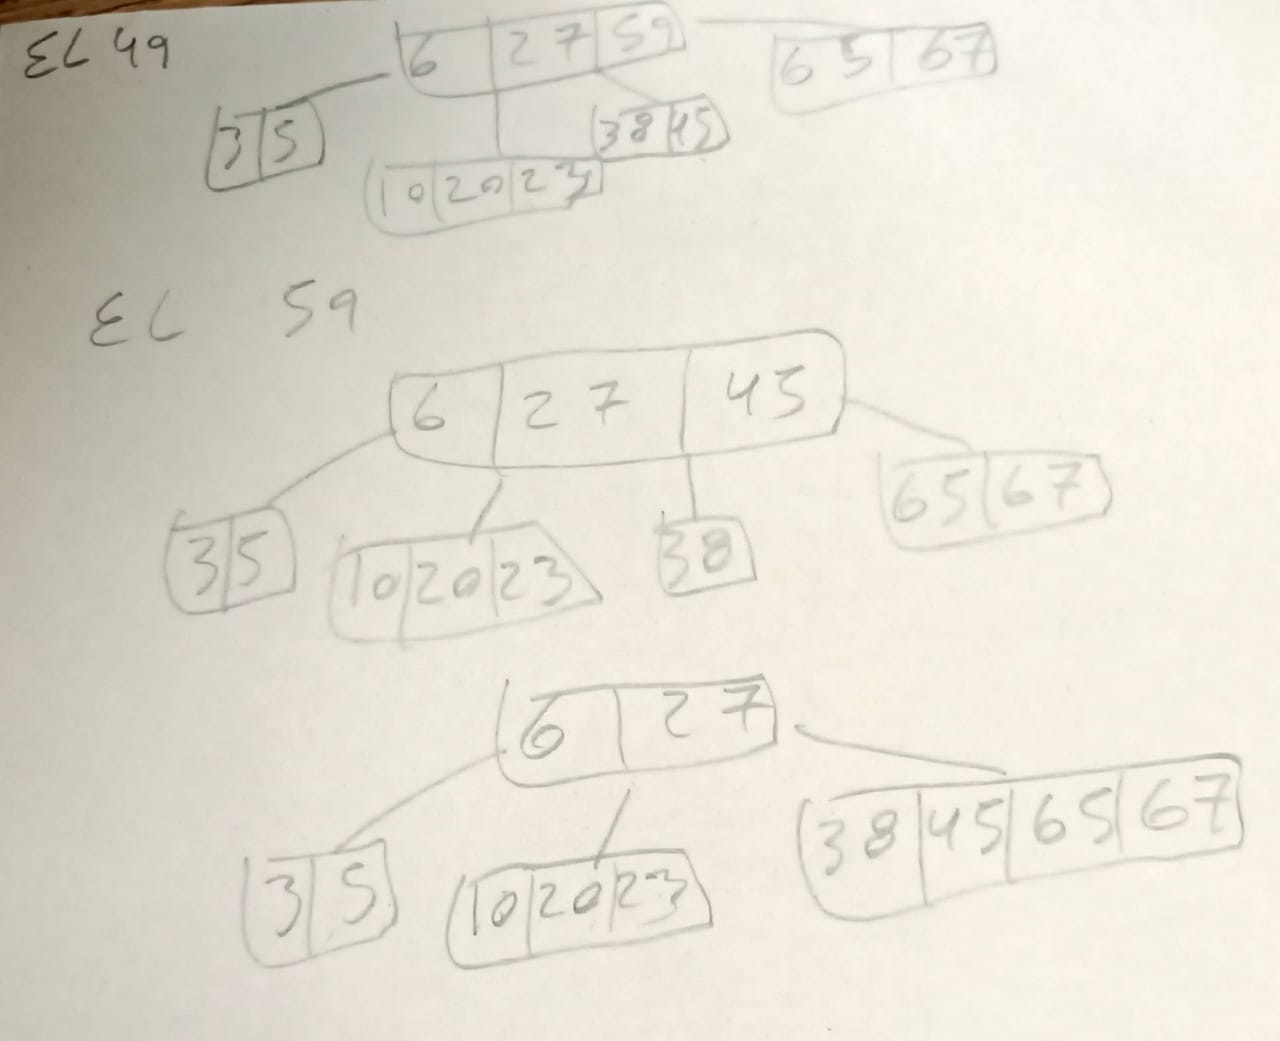 EL 49
6 27 59
65 67
3 5
38 45
10 20 23
EL 59
6 27 45
3 5
10 20 23
38
65 67
6 27
3 5
10 20 23
38 45 65 67